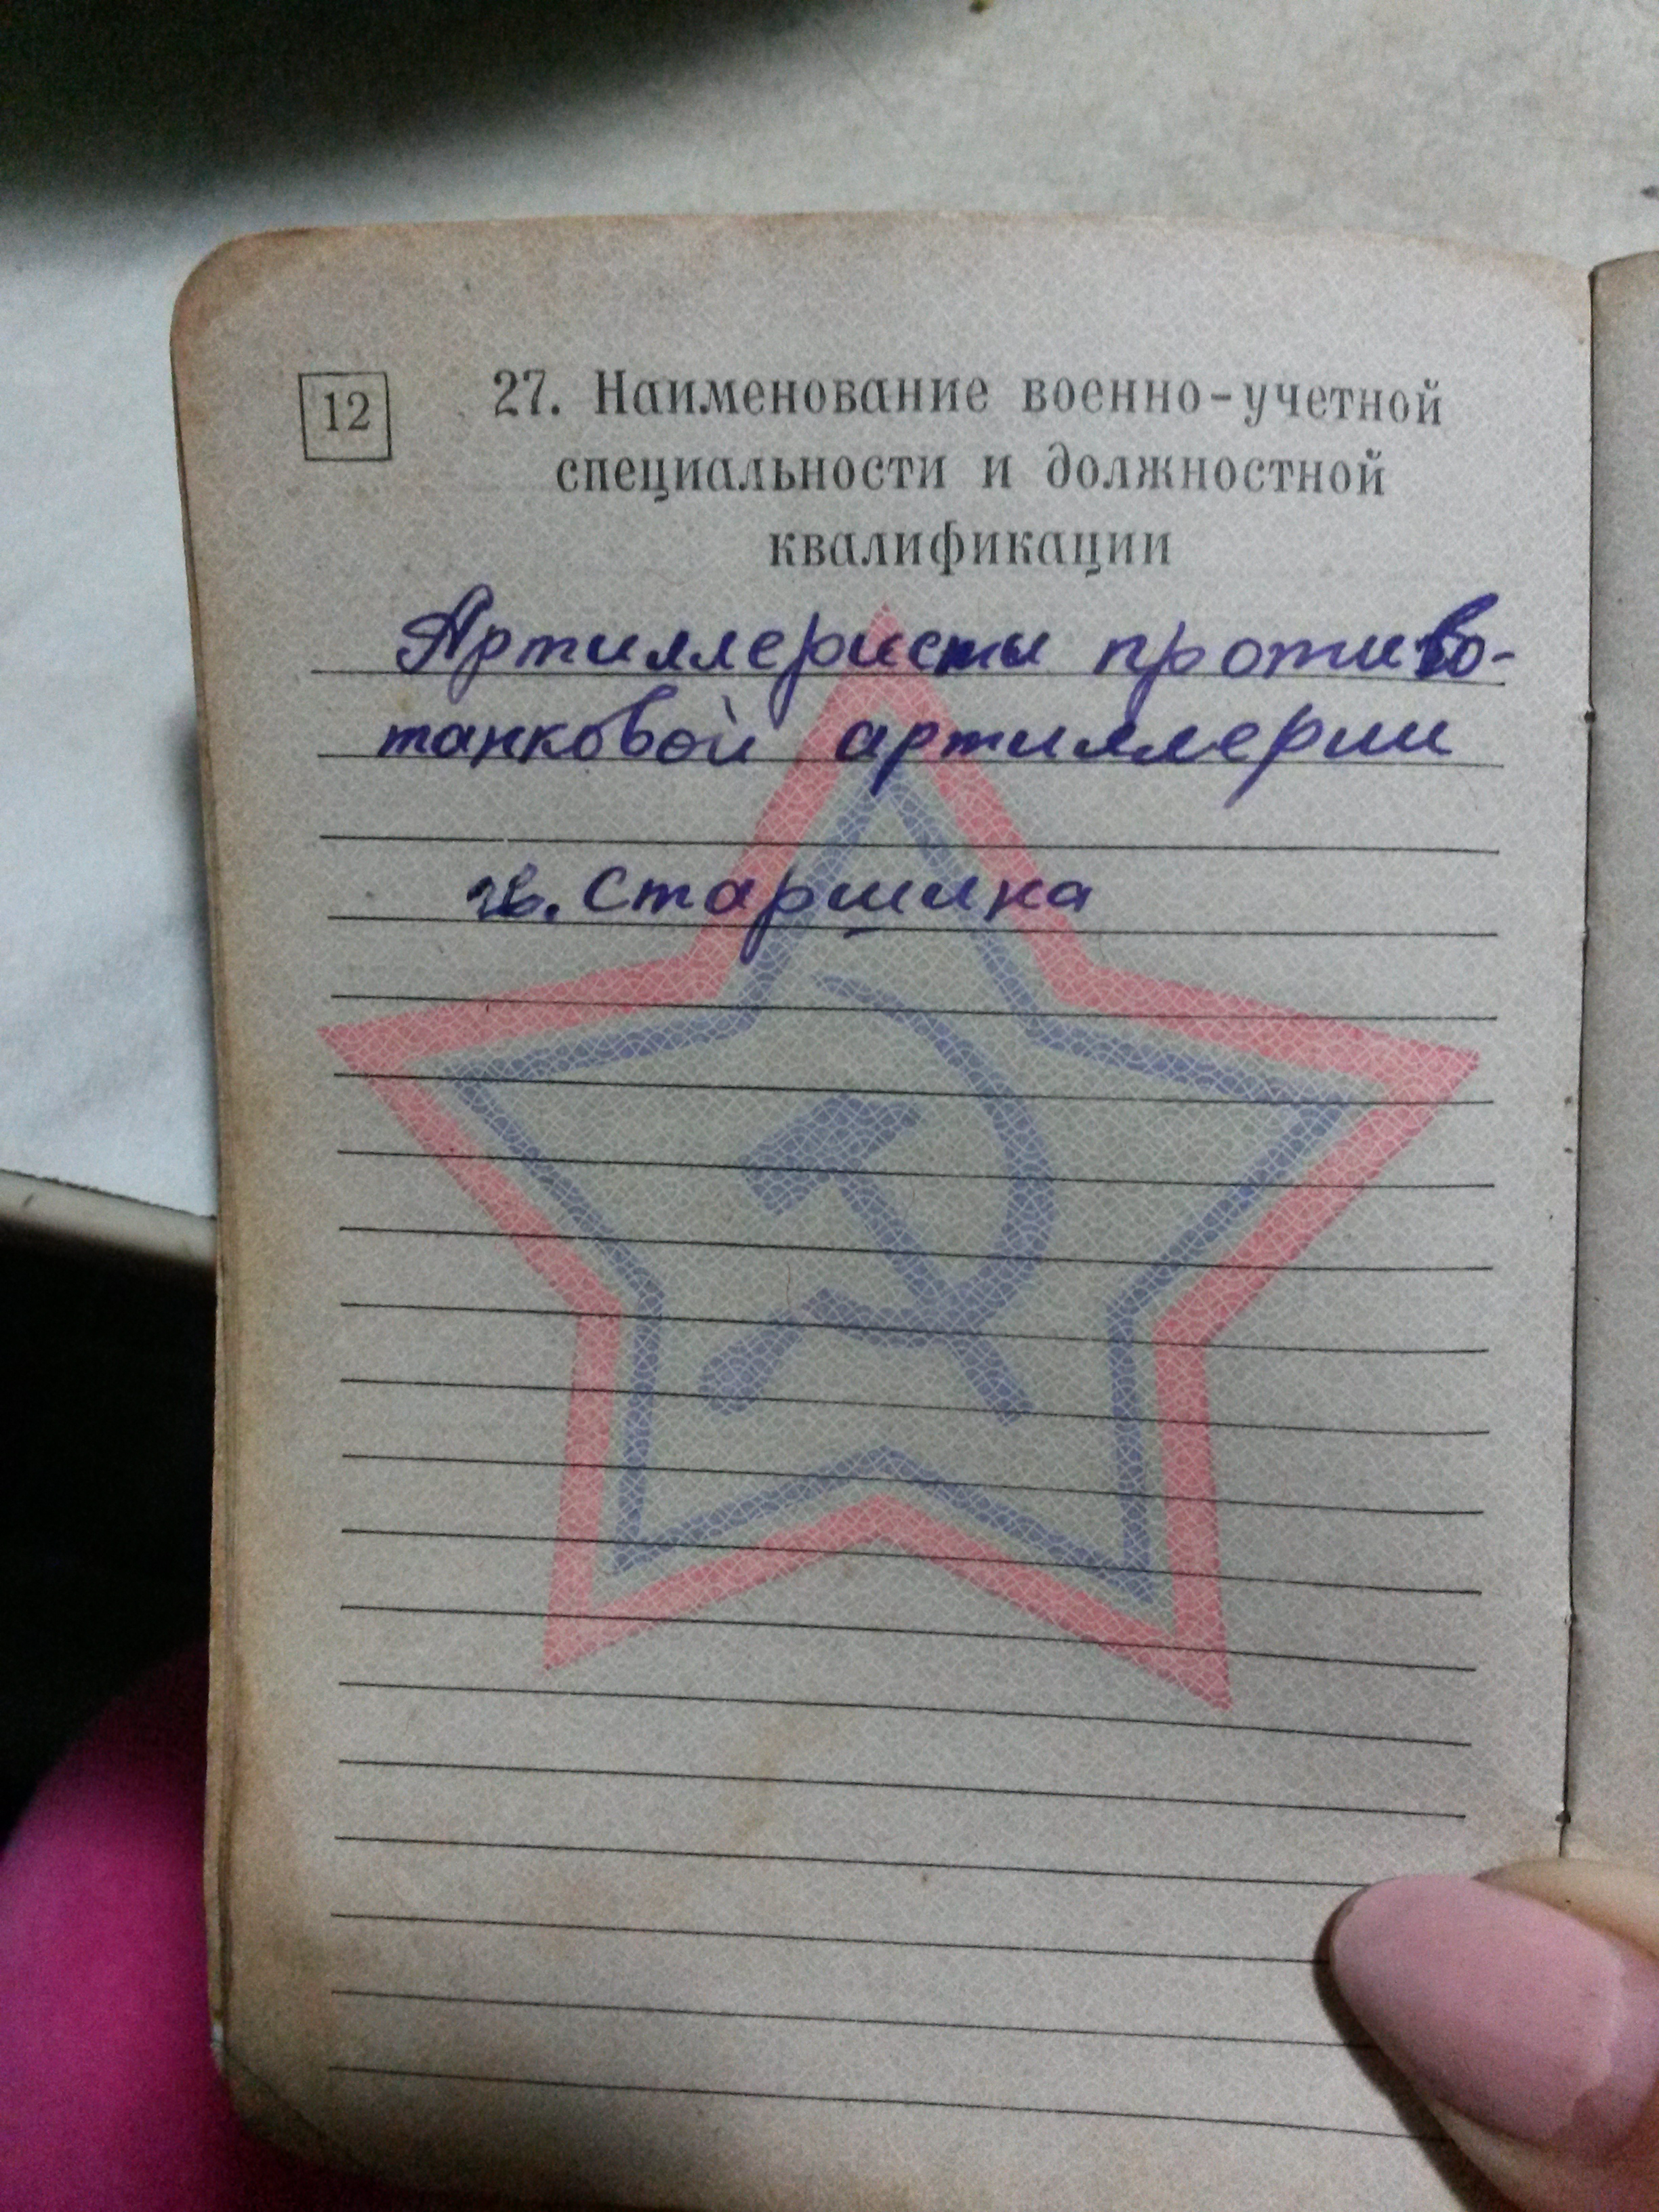 12
27. Наименование военно-учетной
специальности и должностной
квалификации
Артиллеристы противо-
танковой артиллерии
гв. Старшина